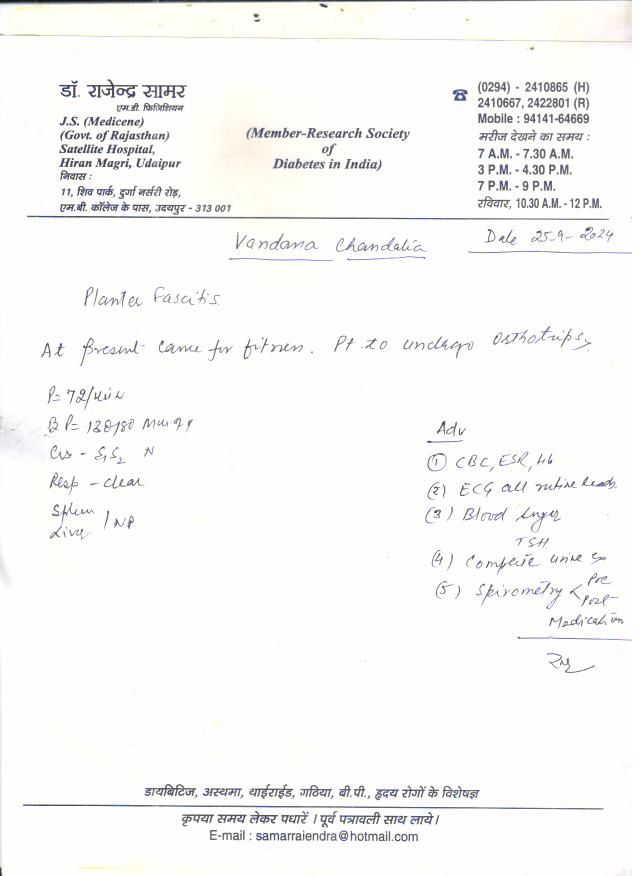 डॉ. राजेन्द्र सामर
एम.डी. फिजिशियन
J.S. (Medicene)
(Govt. of Rajasthan)
Satellite Hospital,
Hiran Magri, Udaipur
निवास :
11, शिव पार्क, दुर्गा नर्सरी रोड़,
एम.बी. कॉलेज के पास, उदयपुर - 313 001
(Member-Research Society
of
Diabetes in India)
(0294) - 2410865 (H)
2410667, 2422801 (R)
Mobile : 94141-64669
मरीज देखने का समय :
7 A.M. - 7.30 A.M.
3 P.M. - 4.30 P.M.
7 P.M. - 9 P.M.
रविवार, 10.30 A.M. - 12 P.M.
Vandana Chandalia
Date 25-9-2024
Planter Fascitis
At present came for fitness. Pt to undergo
P = 72/min
BP = 130/80 mm Hg
Cvs - S1S2 N
Resp - clear
Spleen
Liver / NP
Adv
(1) CBC, ESR, Hb
(2) ECG all rutine leads
(3) Blood Suger
TSH
(4) Complete urine ex
(5) Spirometry < Pre
Post
Medication
डायबिटिज, अस्थमा, थाईराईड, गठिया, बी.पी., हृदय रोगों के विशेषज्ञ
कृपया समय लेकर पधारें । पूर्व पत्रावली साथ लाये ।
E-mail : samarraiendra@hotmail.com